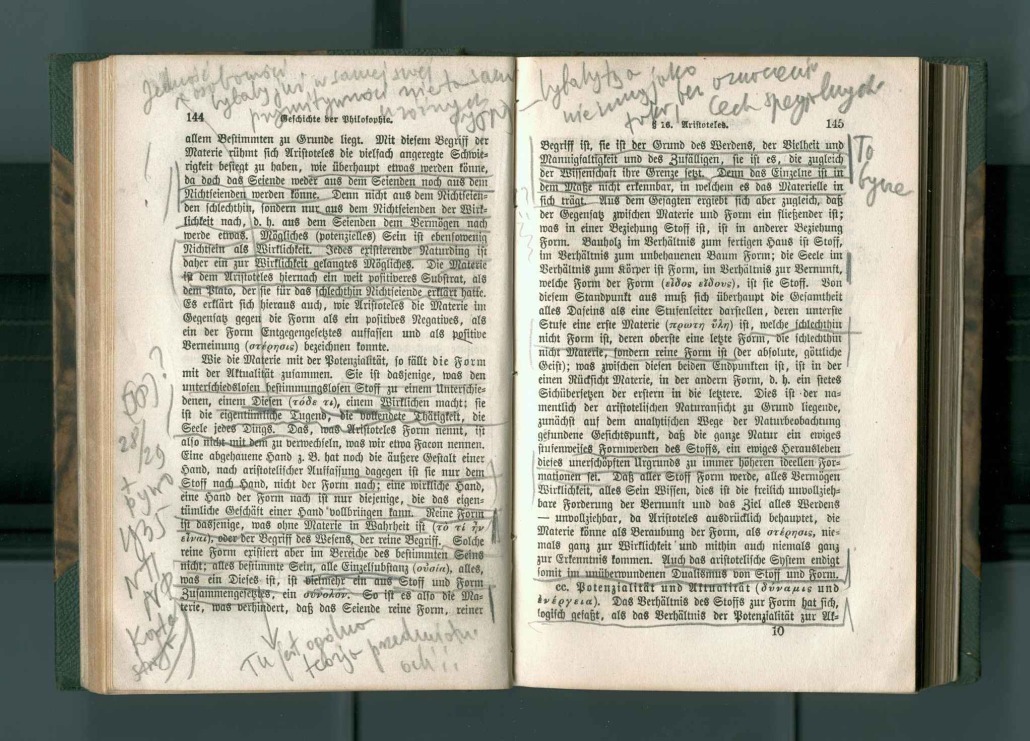 144
Geschichte der Philosophie.
allem Bestimmten zu Grunde liegt. Mit diesem Begriff der
Materie rühmt sich Aristoteles die vielfach angeregte Schwie-
rigkeit besiegt zu haben, wie überhaupt etwas werden könne,
da doch das Seiende weder aus dem Seienden noch aus dem
Nichtseienden werden könne. Denn nicht aus dem Nichtseien-
den schlechthin, sondern nur aus dem Nichtseienden der Wirk-
lichkeit nach, d. h. aus dem Seienden dem Vermögen nach
werde etwas. Mögliches (potenzielles) Sein ist ebensowenig
Nichtsein als Wirklichkeit. Jedes existierende Naturding ist
daher ein zur Wirklichkeit gelangtes Mögliches. Die Materie
ist dem Aristoteles hiernach ein weit positiveres Substrat, als
dem Plato, der sie für das schlechthin Nichtseiende erklärt hatte.
Es erklärt sich hieraus auch, wie Aristoteles die Materie im
Gegensatz gegen die Form als ein positives Negatives, als
ein der Form Entgegengesetztes auffassen und als positive
Verneinung (στέρησις) bezeichnen konnte.
Wie die Materie mit der Potenzialität, so fällt die Form
mit der Aktualität zusammen. Sie ist dasjenige, was den
unterschiedslosen bestimmungslosen Stoff zu einem Unterschie-
denen, einem Diesen (τόδε τι), einem Wirklichen macht; sie
ist die eigentümliche Tugend, die vollendete Thätigkeit, die
Seele jedes Dings. Das, was Aristoteles Form nennt, ist
also nicht mit dem zu verwechseln, was wir etwa Facon nennen.
Eine abgehauene Hand z. B. hat noch die äußere Gestalt einer
Hand, nach aristotelischer Auffassung dagegen ist sie nur dem
Stoff nach Hand, nicht der Form nach; eine wirkliche Hand,
eine Hand der Form nach ist nur diejenige, die das eigen-
tümliche Geschäft einer Hand vollbringen kann. Reine Form
ist dasjenige, was ohne Materie in Wahrheit ist (τὸ τί ἦν
εἶναι), oder der Begriff des Wesens, der reine Begriff. Solche
reine Form existiert aber im Bereiche des bestimmten Seins
nicht; alles bestimmte Sein, alle Einzelsubstanz (οὐσία), alles,
was ein Dieses ist, ist vielmehr ein aus Stoff und Form
Zusammengesetztes, ein σύνολον. So ist es also die Ma-
terie, was verhindert, daß das Seiende reine Form, reiner
28/29
Tu jest ogólno
teorja przedmiotu
§ 16. Aristoteles.
145
Begriff ist, sie ist der Grund des Werdens, der Vielheit und
Mannigfaltigkeit und des Zufälligen, sie ist es, die zugleich
der Wissenschaft ihre Grenze setzt. Denn das Einzelne ist in
dem Maße nicht erkennbar, in welchem es das Materielle in
sich trägt. Aus dem Gesagten ergiebt sich aber zugleich, daß
der Gegensatz zwischen Materie und Form ein fließender ist;
was in einer Beziehung Stoff ist, ist in anderer Beziehung
Form. Bauholz im Verhältnis zum fertigen Haus ist Stoff,
im Verhältnis zum unbehauenen Baum Form; die Seele im
Verhältnis zum Körper ist Form, im Verhältnis zur Vernunft,
welche Form der Form (εἶδος εἴδους), ist sie Stoff. Von
diesem Standpunkt aus muß sich überhaupt die Gesamtheit
alles Daseins als eine Stufenleiter darstellen, deren unterste
Stufe eine erste Materie (πρωτη ὕλη) ist, welche schlechthin
nicht Form ist, deren oberste eine letzte Form, die schlechthin
nicht Materie, sondern reine Form ist (der absolute, göttliche
Geist); was zwischen diesen beiden Endpunkten ist, ist in der
einen Rücksicht Materie, in der andern Form, d. h. ein stetes
Sichübersetzen der erstern in die letztere. Dies ist der na-
mentlich der aristotelischen Naturansicht zu Grund liegende,
zunächst auf dem analytischen Wege der Naturbeobachtung
gefundene Gesichtspunkt, daß die ganze Natur ein ewiges
stufenweises Formwerden des Stoffs, ein ewiges Herausleben
dieses unerschöpften Urgrunds zu immer höheren ideellen For-
mationen sei. Daß aller Stoff Form werde, alles Vermögen
Wirklichkeit, alles Sein Wissen, dies ist die freilich unvollzieh-
bare Forderung der Vernunft und das Ziel alles Werdens
— unvollziehbar, da Aristoteles ausdrücklich behauptet, die
Materie könne als Beraubung der Form, als στέρησις, nie-
mals ganz zur Wirklichkeit und mithin auch niemals ganz
zur Erkenntnis kommen. Auch das aristotelische System endigt
somit im unüberwundenen Dualismus von Stoff und Form.
cc. Potenzialität und Aktualität (δύναμις und
ἐνέργεια). Das Verhältnis des Stoffs zur Form hat sich,
logisch gefaßt, als das Verhältnis der Potenzialität zur Ak-
10
To